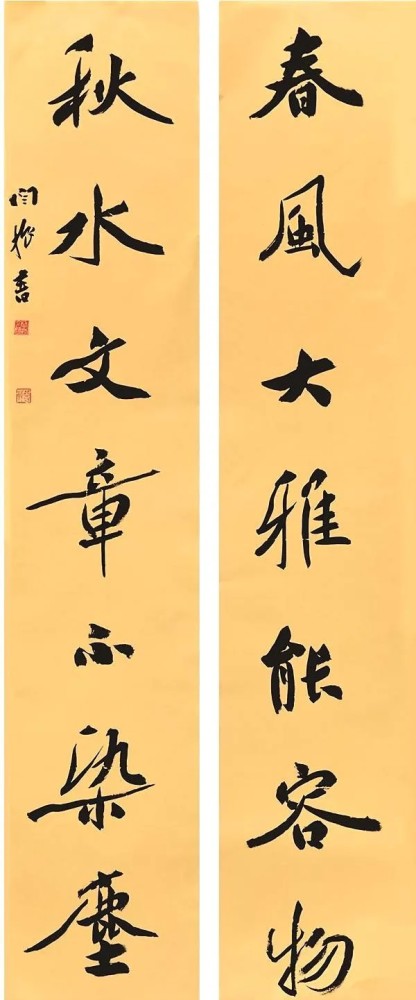 春風大雅能容物
秋水文章不染塵
閆振書